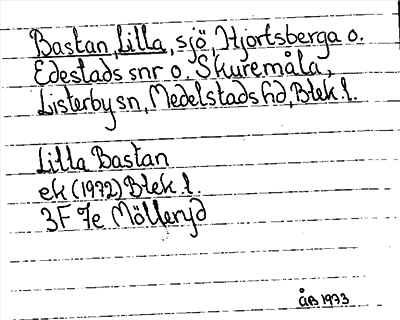 Bastan, Lilla, sjö, Hjortsberga o.
Edestads snr o. Skuremåla,
Listerby sn, Medelstads hd, Blek l.
Lilla Bastan
ek (1972) Blek l.
3F 7e Möllenyd
ÅB 1973